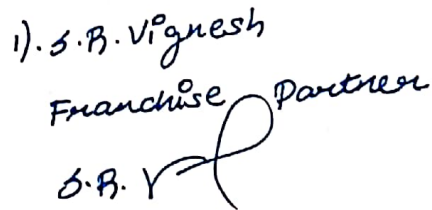 1). S.R. Vignesh
Franchise Partner
S.R. V